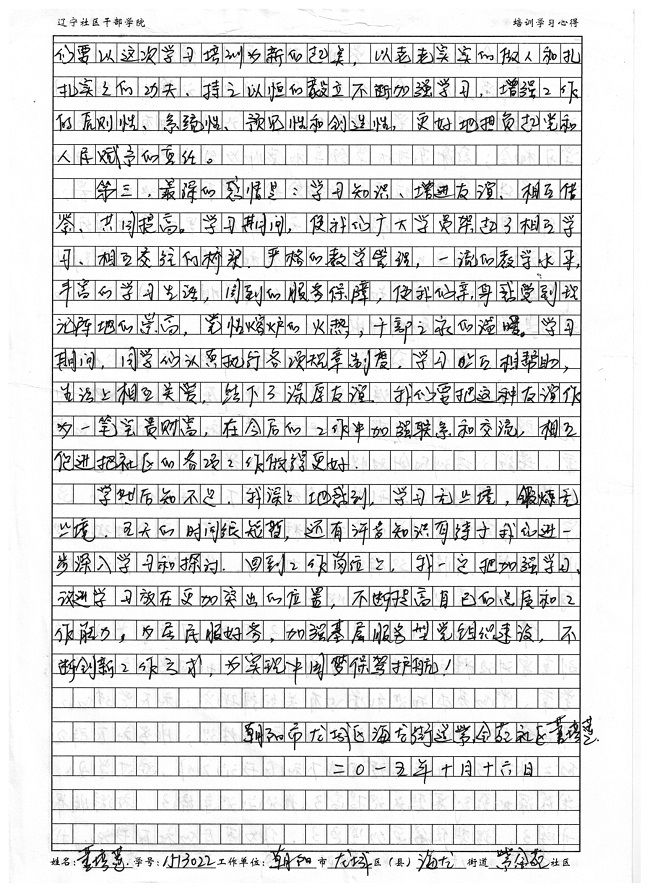 辽宁社区干部学院 培训学习心得
们要以这次学习培训为新的起点，以老老实实的做人和扎
扎实实的功夫、持之以恒的毅力不断加强学习，增强工作
的原则性、系统性、预见性和创造性，更好地担负起党和
人民赋予的责任。
第三，最深的感悟是：学习知识、增进友谊、相互借
鉴、共同提高。学习期间，使我们广大学员架起了相互学
习、相互交往的桥梁，严格的教学管理，一流的教学水平，
丰富的学习生活，周到的服务保障，使我们亲身感受到理
论阵地的崇高，党性熔炉的火热，干部之家的温暖。学习
期间，同学们认真执行各项规章制度，学习上互相帮助，
生活上相互关爱，结下了深厚友谊。我们要把这种友谊作
为一笔宝贵财富，在今后的工作中加强联系和交流，相互
促进把社区的各项工作做得更好.
学然后知不足，我深深地感到，学习无止境，锻炼无
止境．五天的时间很短暂，还有许多知识有待于我们进一
步深入学习和探讨．回到工作岗位上，我一定把加强学习、
改进学习放在更加突出的位置，不断提高自己的素质和工
作能力，为居民服好务，加强基层服务型党组织建设，不
断创新工作方式，为实现中国梦保驾护航！
朝阳市龙城区海龙街道紫金苑社区
二〇一五年十月十六日
姓名: 学号: 1513022 工作单位: 朝阳 市 龙城 区（县） 海龙 街道 紫金苑 社区